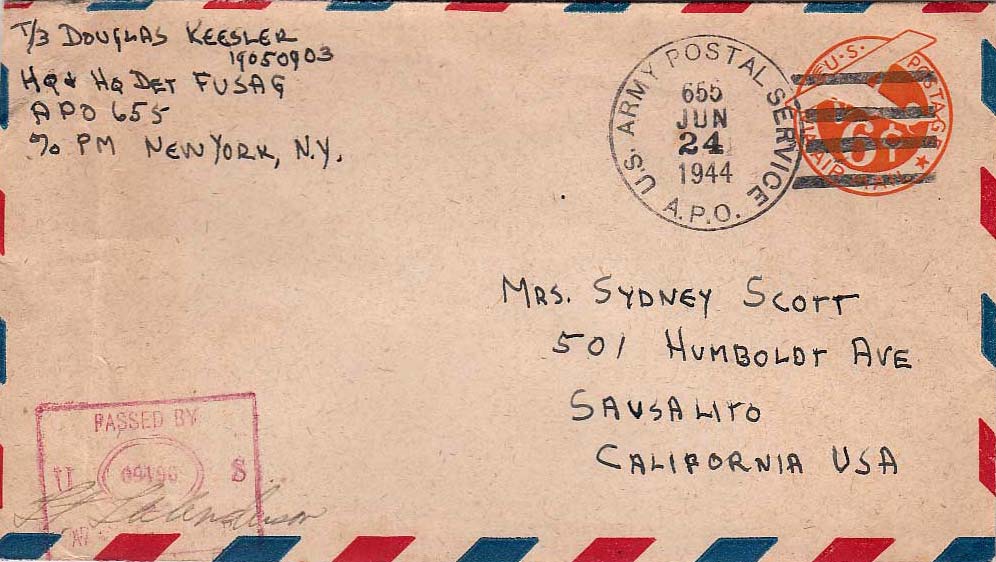 T/3 DOUGLAS KEESLER
19050903
HQ & HQ DET FUSAG
APO 655
℅ PM NEW YORK, N.Y.
U.S. ARMY POSTAL SERVICE
655
JUN
24
1944
A.P.O.
U.S. POSTAGE
6¢
AIR MAIL
MRS. SYDNEY SCOTT
501 HUMBOLDT AVE
SAUSALITO
CALIFORNIA USA
PASSED BY
U S